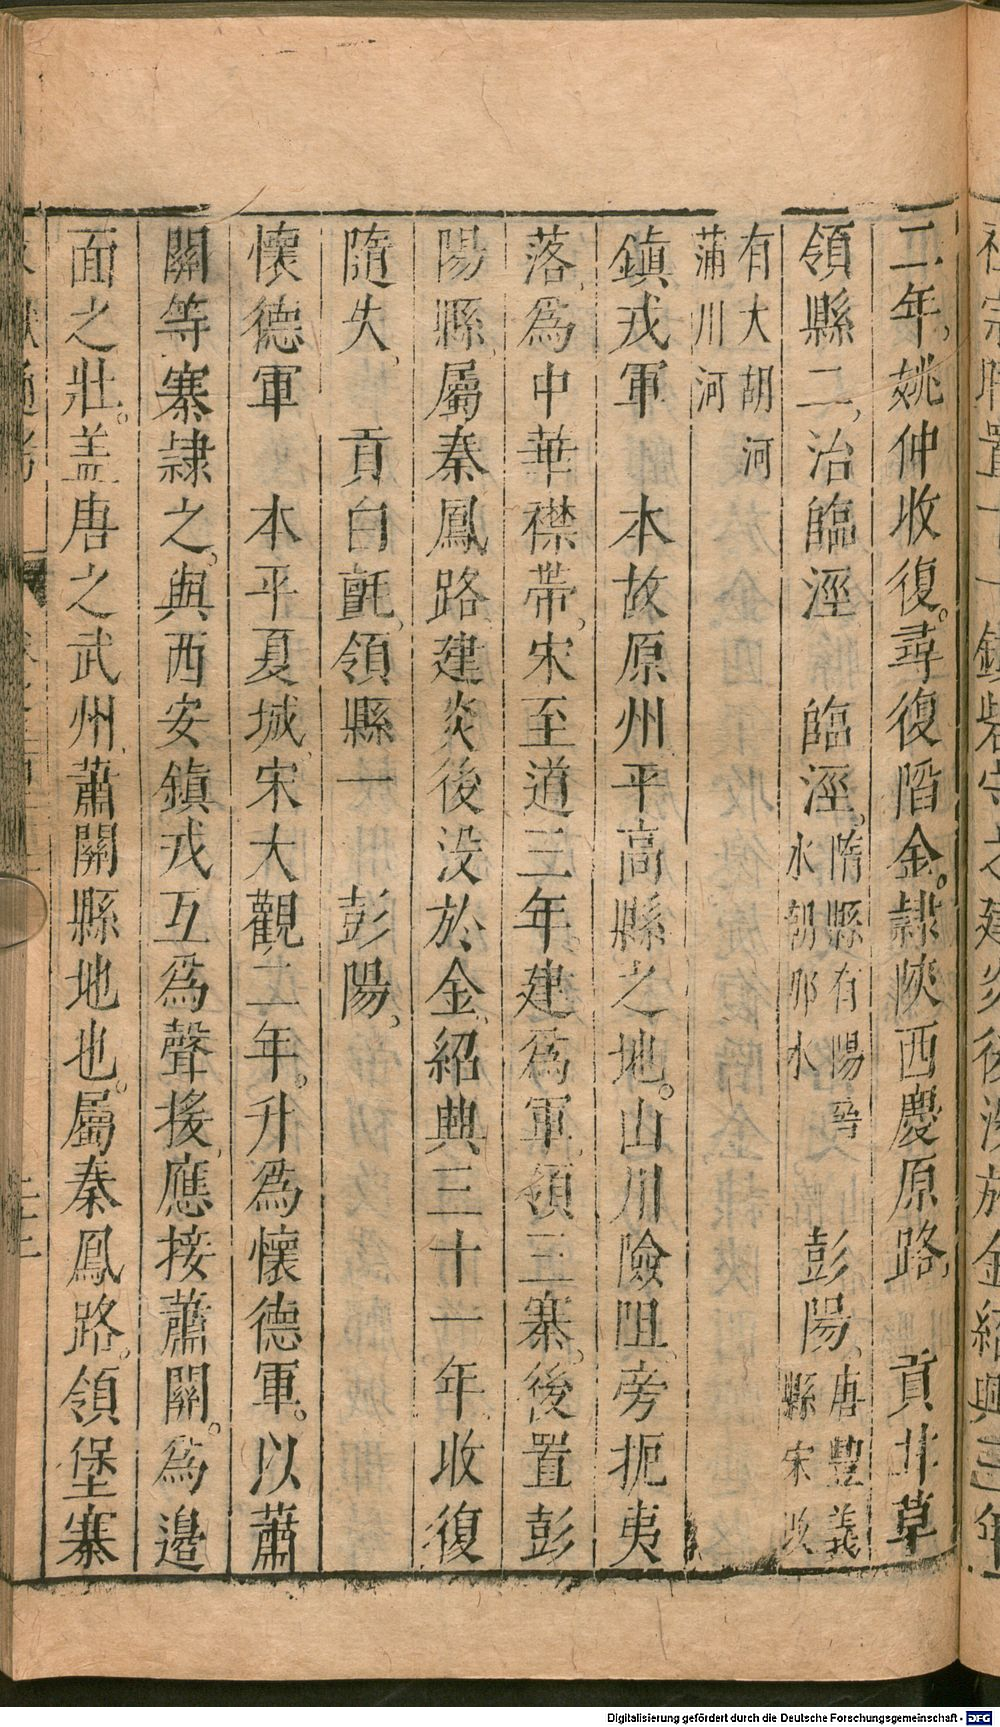 二年姚仲收復。尋復䧟金。隷陜西慶原路 貢甘草
領縣二治臨涇 臨涇。隋縣有陽晉水朝那水 彭陽唐豐義縣宋改
有大胡河
蒲川河
鎮戎軍 本故原州平高縣之地。山川險阻。旁扼夷
落為中華襟帶宋至道三年建為軍領三寨。後置彭
陽縣屬秦鳳路建炎後没於金紹興三十一年收復
隨失 貢白氈領縣一 彭陽
懷德軍 本平夏城宋大觀二年。升為懷德軍。以蕭
關等寨隷之。與西安鎮戎互為聲援應接蕭關。為邊
面之壯。盖唐之武州蕭關縣地也。屬秦鳳路。領堡寨
Digitalisierung gefördert durch die Deutsche Forschungsgemeinschaft - DFG